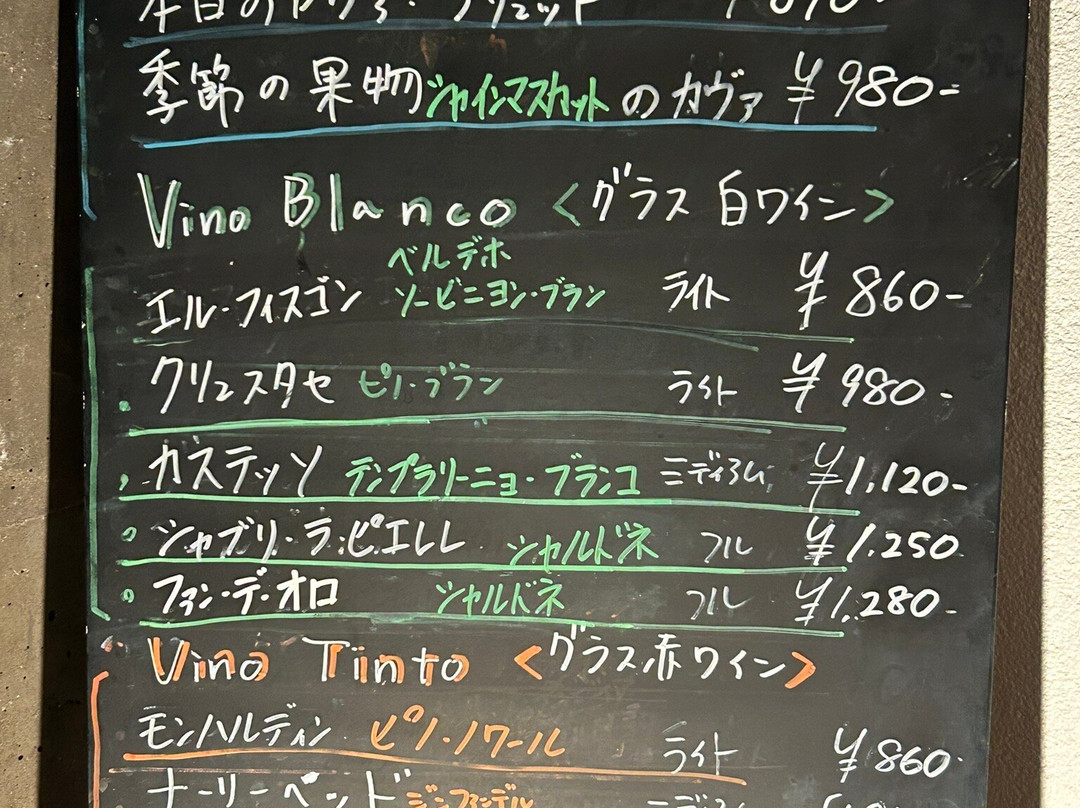 本日のカヴァ・ブリュット
季節の果物シャインマスカットのカヴァ ¥980-
Vino Blanco <グラス 白ワイン>
ベルデホ
エル・フィスゴン ソービニヨン・ブラン ライト ¥860-
クリュスタセ ピノ・ブラン ライト ¥980-
カステッソ テンプラリーニョ・ブランコ ミディアム ¥1,120-
シャブリ・ラ・ピエレレ シャルドネ フル ¥1.250
ファン・デ・オロ シャルドネ フル ¥1.280-
Vino Tinto <グラス赤ワイン>
モンハルディン ピノ・ノワール ライト ¥860-
ナーリーヘッド ジンファンデル ミディアム